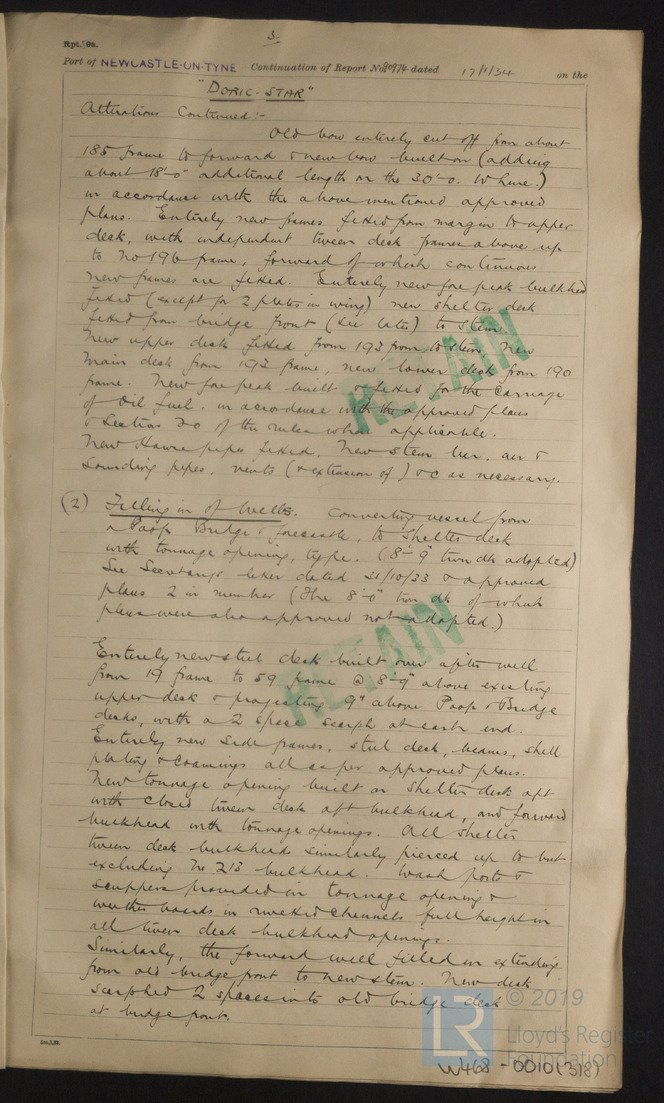 3.
Rpt. 9a.
Port of NEWCASTLE-ON-TYNE Continuation of Report No. 90974 dated 17/1/34 on the
"DORIC-STAR"
Alterations Continued :-
Old bow entirely cut off from about
185 frame to forward & new bow built on (adding
about 18'-0" additional length on the 30'-0.
in accordance with the above mentioned approved
plans. Entirely new frames fitted from margin to upper
deck, with independent tween deck frames above up
to No 196 frame, forward of which continuous
new frames are fitted. Entirely new fore peak bulkhead
fitted (except for 2 plates in wing) new shelter deck
fitted from bridge front (see later) to stem.
New upper deck fitted from 193 from to stem, New
main deck from 193 frame, new lower deck from 190
frame. New fore peak built & fitted for the Carriage
of Oil fuel, in accordance with the approved plans
& Section 20 of the rules where applicable.
New Hawse pipes fitted, New stem bar, air &
sounding pipes, vents (& extension of) &c as necessary.
(2) Filling in of Wells. Converting vessel from
a Poop Bridge & forecastle, to Shelter deck
with tonnage opening, type. (8'-9" twn dk adopted)
See Secretary's letter dated 21/10/33 & approved
plans 2 in number (The 8'-0" twn dk of which
plans were also approved not adopted.)
Entirely new steel deck built over after well
from 19 frame to 59 frame @ 8'-9" above existing
upper deck & projecting 9" above Poop & Bridge
decks, with a 2 space scarph at each end.
Entirely new side frames, steel deck, beams, shell
plating & coamings all as per approved plans.
New tonnage opening built on Shelter deck aft
with closed tween deck aft bulkhead, and forward
bulkhead with tonnage openings. All shelter
tween deck bulkheads similarly pierced up to but
excluding No 213 bulkhead. Wash ports &
scuppers provided in tonnage opening &
weather boards in rivetted channels full height in
all tween deck bulkhead openings.
Similarly, the forward well filled in extending
from old bridge front to new stem. New deck
scarphed 2 spaces into old bridge deck
at bridge front.
RETAIN
RETAIN
© 2019
LR
Lloyd's Register
Foundation
W468-0010(3/8)